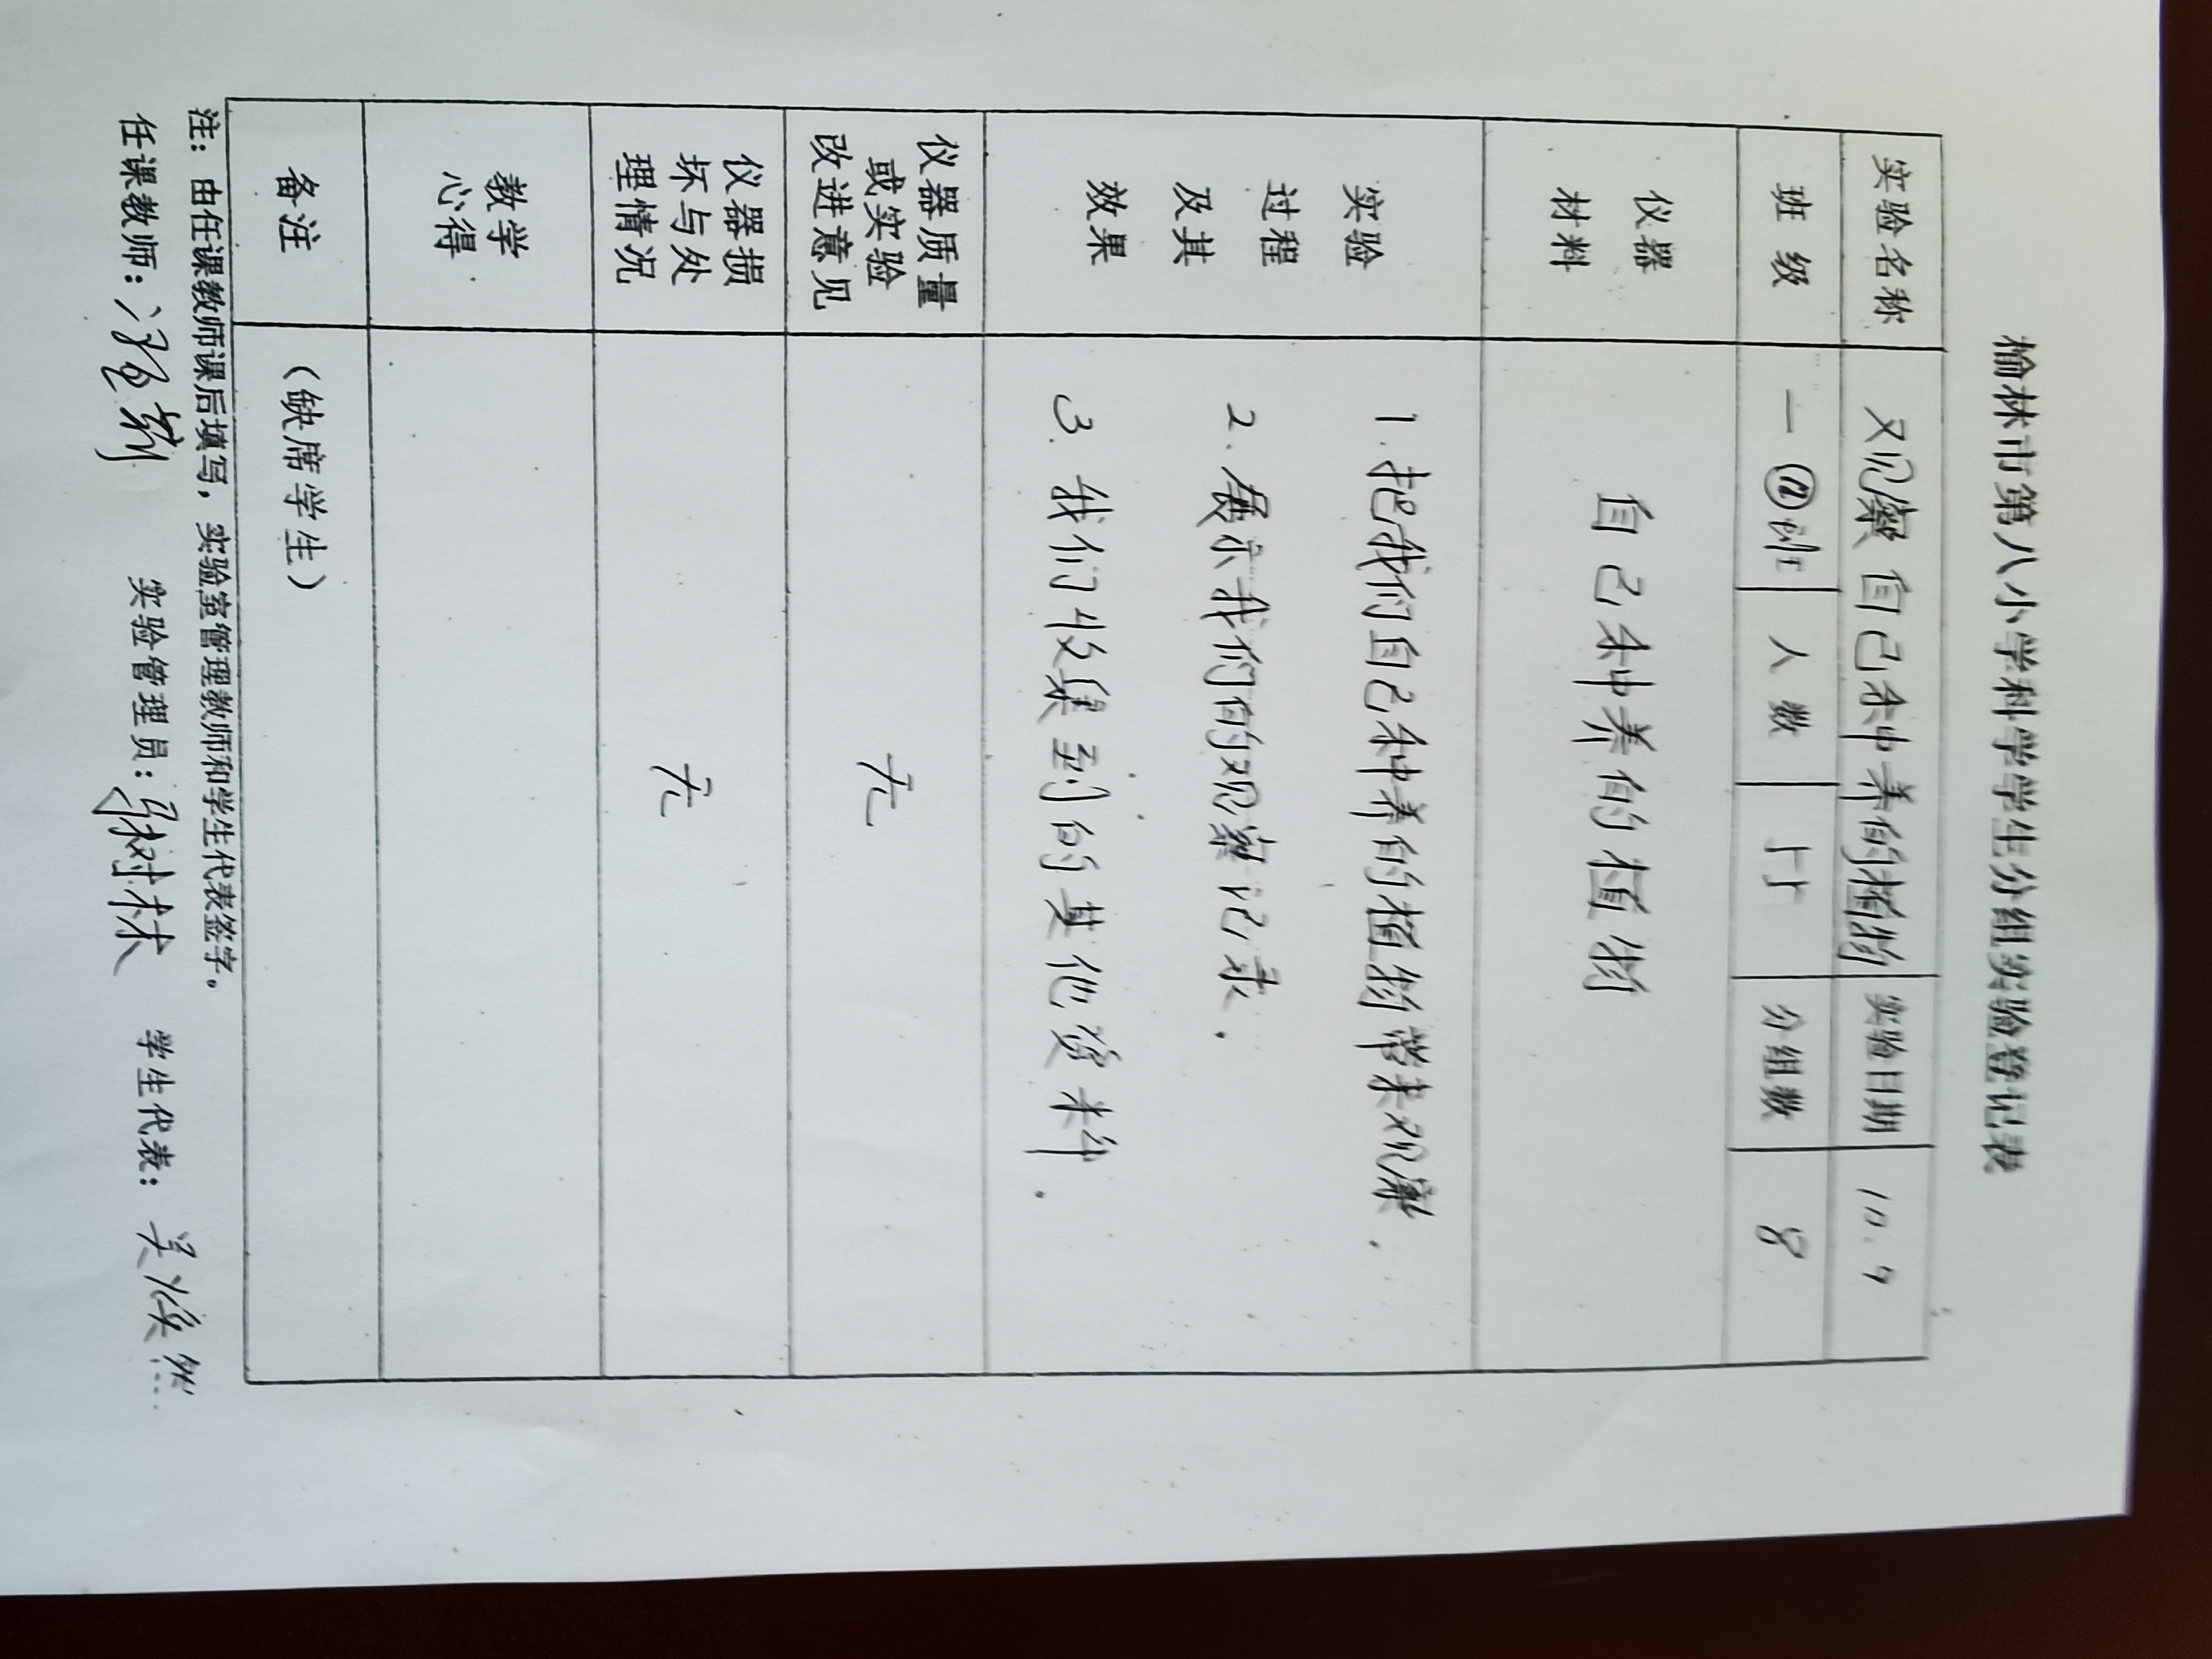 榆林市第八小学科学学生分组实验登记表
实验名称 观察自己种养的植物 实验日期 10.9
班级 一⑫班 人数 55 分组数 8
仪器
材料
自己种养的植物
实验
过程
及其
效果
1.把我们自己种养的植物带来观察.
2.展示我们的观察记录.
3.我们收集到的其他资料.
仪器质量
或实验
改进意见
无
仪器损
坏与处
理情况
无
教学
心得
备注
(缺席学生)
注:由任课教师课后填写,实验室管理教师和学生代表签字。
任课教师: 实验管理员: 学生代表: